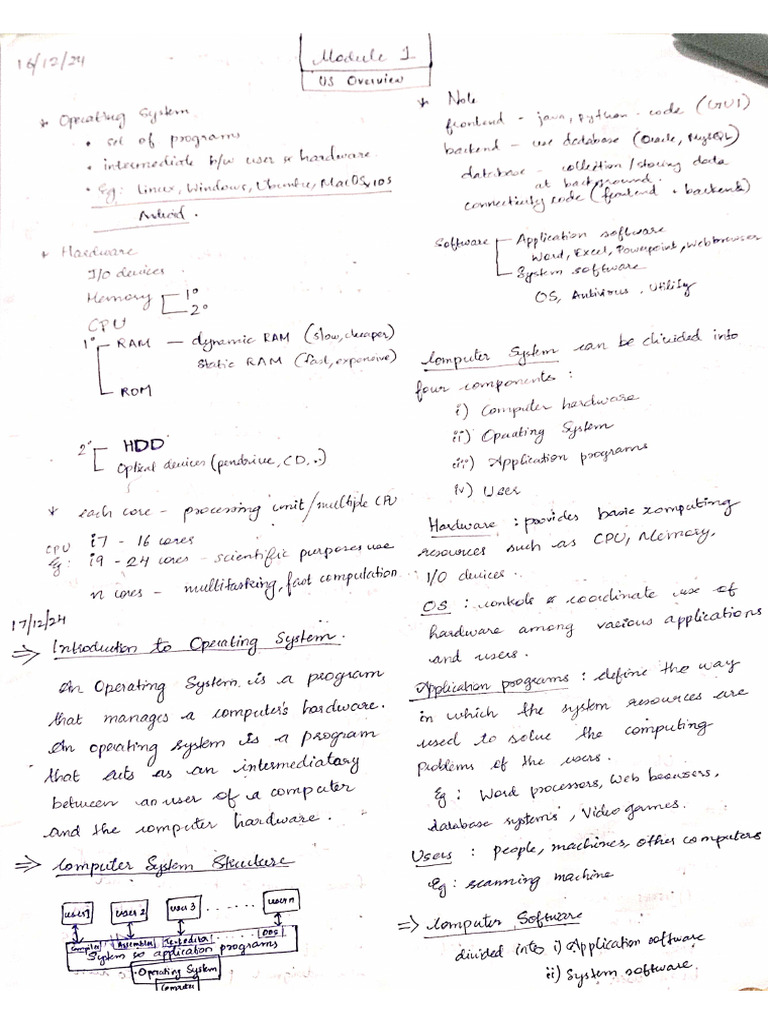 16/12/24
Module 1
OS Overview
* Operating System
• set of programs
• intermediate b/w user & hardware
• Eg: Linux, Windows, Ubuntu, MacOS, iOS
Android.
* Hardware
I/O devices
Memory 1°
2°
CPU
1° RAM — dynamic RAM (slow, cheaper)
static RAM (fast, expensive)
ROM
2° HDD
Optical devices (pendrive, CD, ..)
* each core - processing unit/multiple CPU
CPU i7 - 16 cores
Eg: i9 - 24 cores - scientific purposes use
n cores - multitasking, fast computation
17/12/24
⇒ Introduction to Operating System.
An Operating System is a program
that manages a computer's hardware.
An operating system is a program
that acts as an intermediatary
between an user of a computer
and the computer hardware.
⇒ Computer System Structure
user1 user 2 user 3 ...... user n
Compiler Assembler Text editor .... DBS
System so application programs
Operating System
Computer
* Note
frontend - java, python - code (GUI)
backend - use database (Oracle, MySQL)
database - collection/storing data
at background.
connectivity code (frontend + backend)
Software Application software
Word, Excel, Powerpoint, Webbrowser
System software
OS, Antivirus, Utility
Computer System can be divided into
four components :
i) Computer hardware
ii) Operating System
iii) Application programs
iv) User
Hardware : provides basic computing
resources such as CPU, Memory,
I/O devices.
OS : controls & coordinate use of
hardware among various applications
and users.
Application programs : define the way
in which the system resources are
used to solve the computing
problems of the users.
Eg : Word processors, Web browsers,
database systems, Video games.
Users : people, machines, other computers
Eg : scanning machine
⇒ Computer Software
divided into i) Application software
ii) System software.